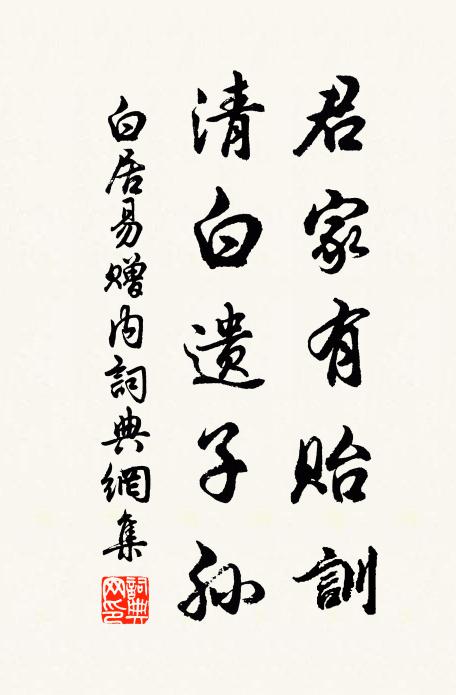 君家有貽訓
清白遺子孫
白居易贈内詞典網集
詞典网印